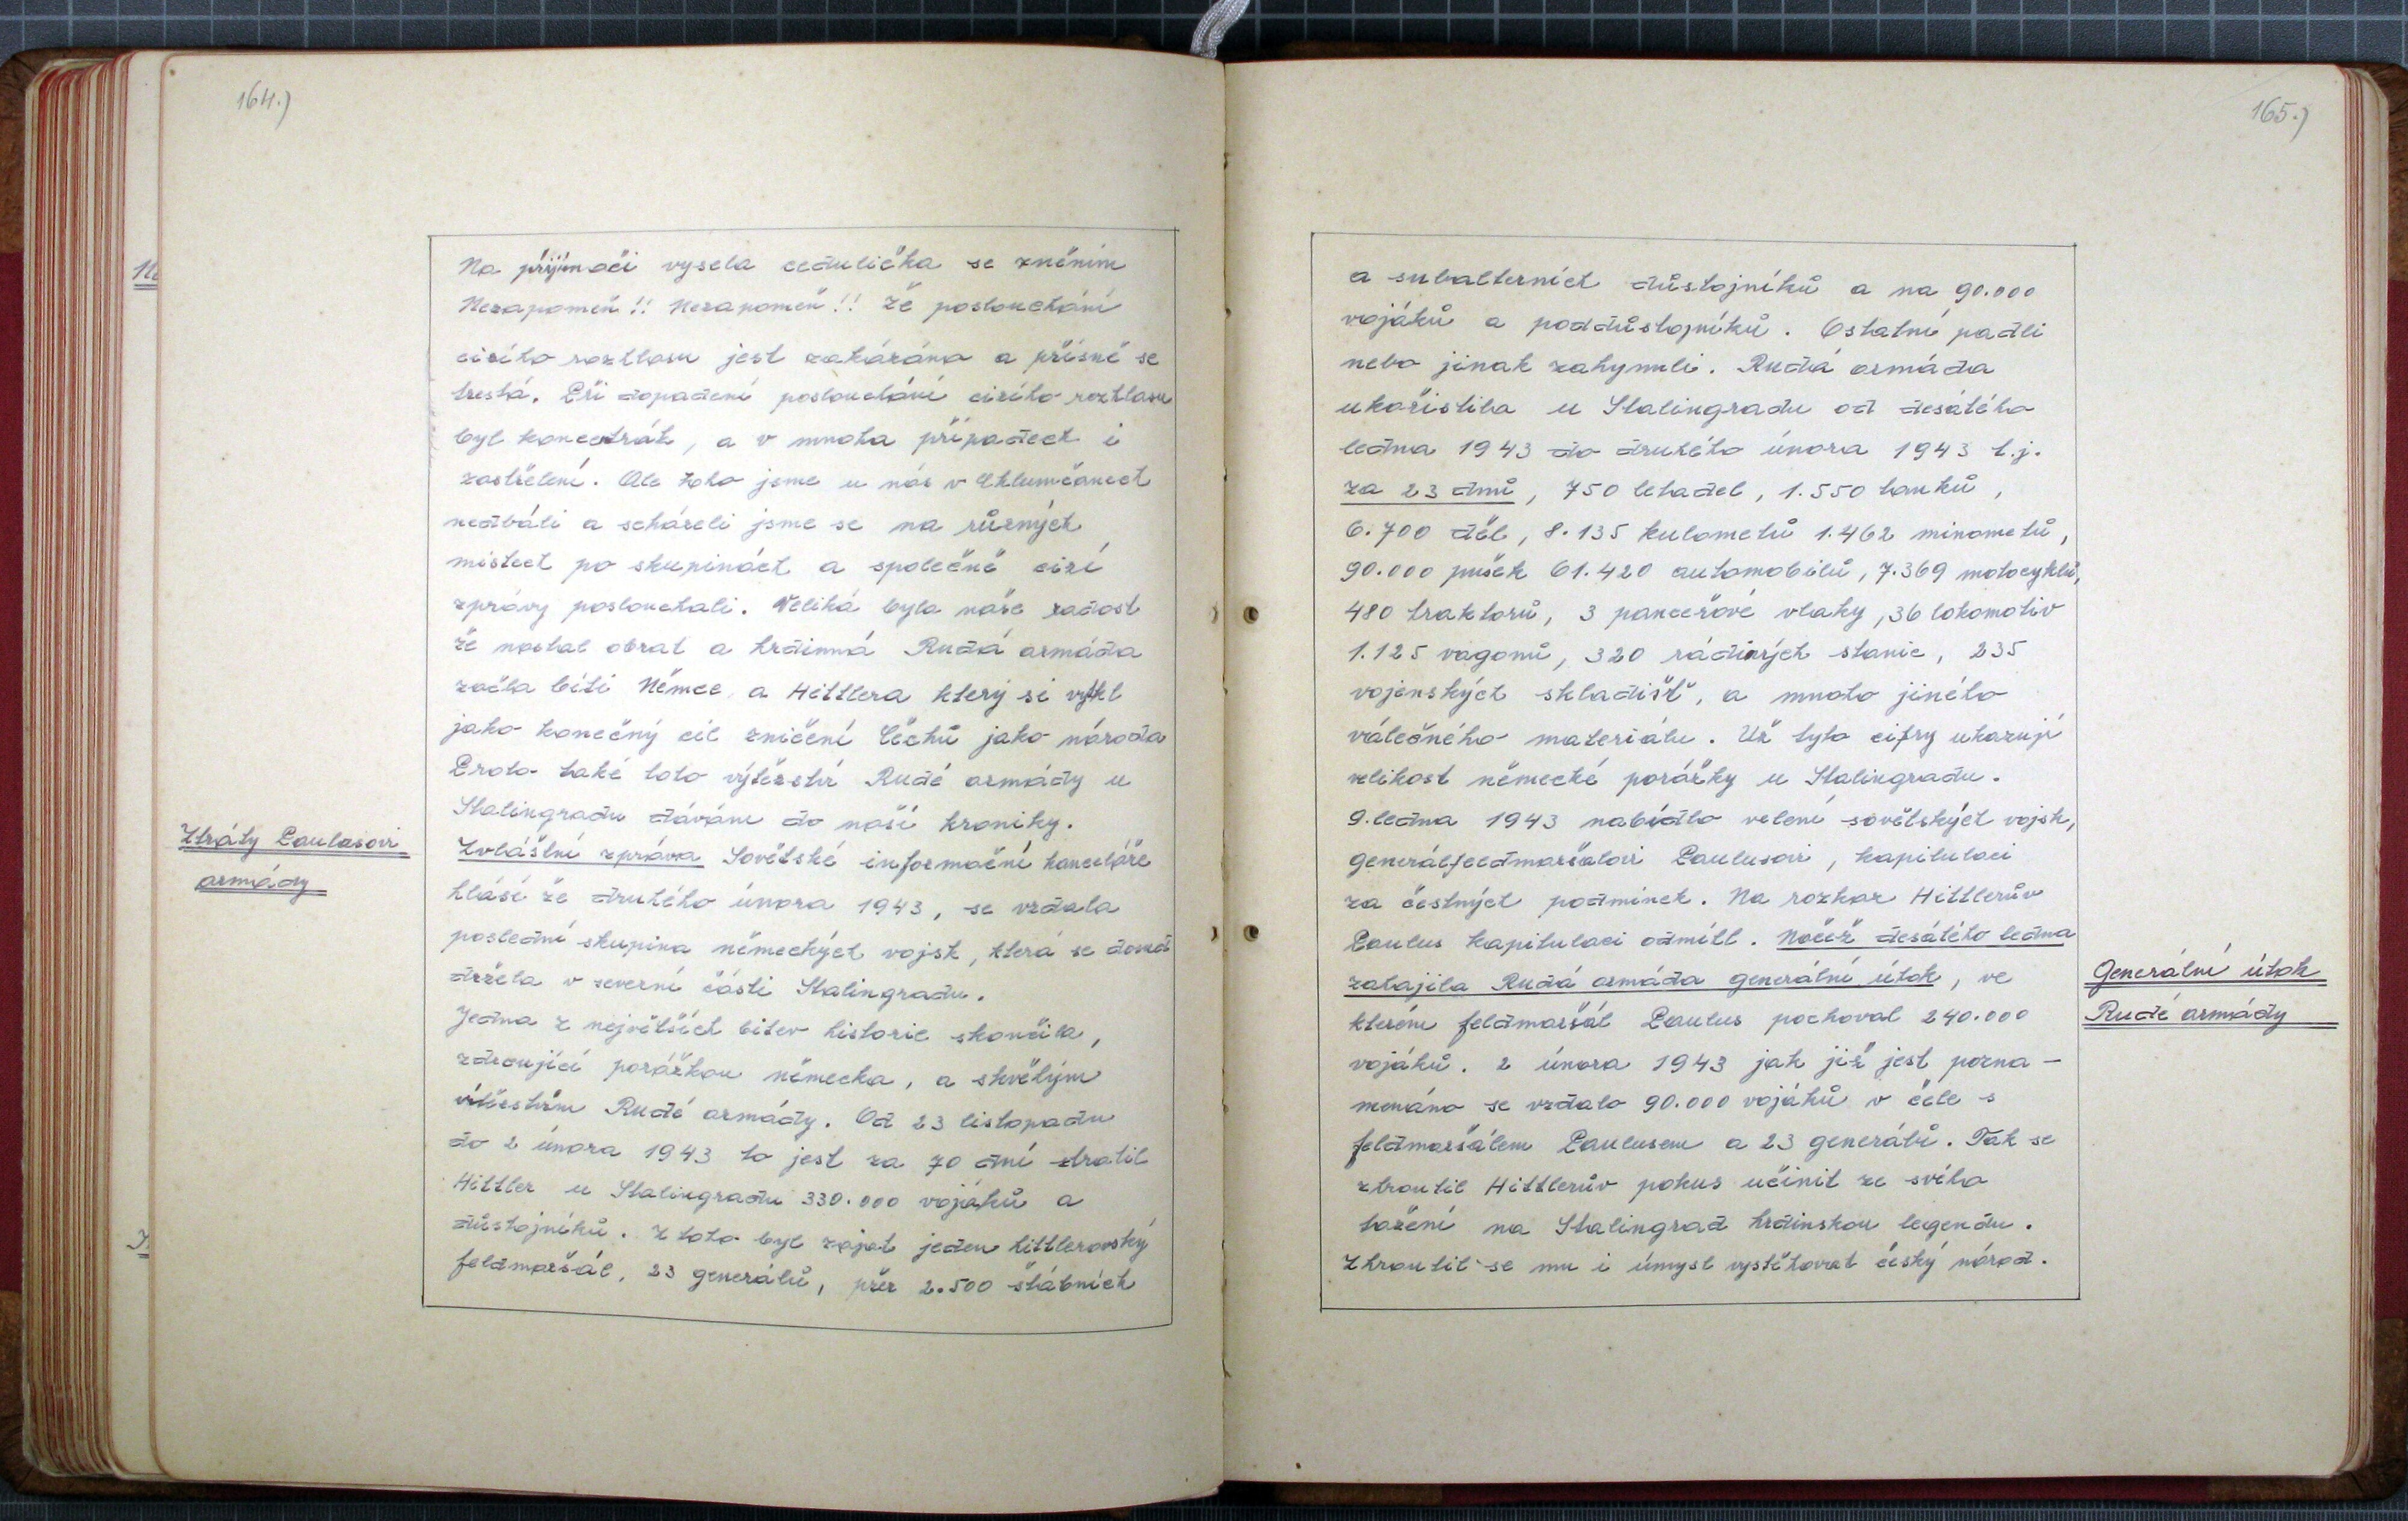 164.)
Na přijímači vysela cedulička se zněním
Nezapomeň!! Nezapomeň!! že poslouchání
cisího rozhlasu jest zakázáno a přísně se
trestá. Při dopadení poslouchání cizího rozhlasu
byl koncentrák, a v mnoha případech i
zastřelení. Ale toho jsme u nás v Chlumčanech
nedbáli a scházeli jsme se na různých
místech po skupinách a společně cizí
zprávy poslouchali. Veliká byla naše radost
že nastal obrat a hrdinná Rudá armáda
začla bíti Němce a Hittlera který si vytkl
jako konečný cíl zničení Čechů jako národa
Proto také toto výtězství Rudé armády u
Stalingradu dáváme do naší kroniky.
Ztráty Paulusovi
armády
Zvláštní zpráva Sovětské informační kanceláře
hlásí že druhého února 1943, se vzdala
poslední skupina německých vojsk, která se dosud
držela v severní části Stalingradu.
Jedna z největších bitev historie skončila,
zdrcující porážkou německa, a skvělým
vítěestvím Rudé armády. Od 23 listopadu
do 2 února 1943 to jest za 70 dní ztratil
Hittler u Stalingradu 330.000 vojáků a
důstojníků. Z toho byl zajat jeden hittlerovský
feldmaršál, 23 generálů, přez 2.500 štábních
165.)
a subalterních důstojníků a na 90.000
vojáků a poddůstojníků. Ostatní padli
nebo jinak zahynuli. Rudá armáda
ukořistila u Stalingradu od desátého
ledna 1943 do druhého února 1943 t.j.
za 23 dnů, 750 letadel, 1.550 tanků,
6.700 děl, 8.135 kulometů 1.462 minometů,
90.000 pušek 61.420 automobilů, 7.369 motocyklů,
480 traktorů, 3 pancéřové vlaky, 36 lokomotiv
1.125 vagonů, 320 rádiových stanic, 235
vojenských skladišť, a mnoho jiného
válečného materiálu. Už tyto cifry ukazují
velikost německé porážky u Stalingradu.
9. ledna 1943 nabídlo velení sovětských vojsk,
generálfeldmaršalovi Paulusovi, kapitulaci
za čestných podmínek. Na rozkaz Hittlerův
Paulus kapitulaci odmítl. Načež desátého ledna
zahajila Rudá armáda generální útok, ve
Generální útok
Rudé armády
kterém feldmaršál Paulus pochoval 240.000
vojáků. 2 února 1943 jak již jest pozna-
menáno se vzdalo 90.000 vojáků v čele s
feldmaršálem Paulusem a 23 generálů. Tak se
zhroutil Hittlerův pokus učinit ze svého
tažení na Stalingrad hrdinskou legendu.
Zhroutil se mu i úmysl vystěhovat český národ.